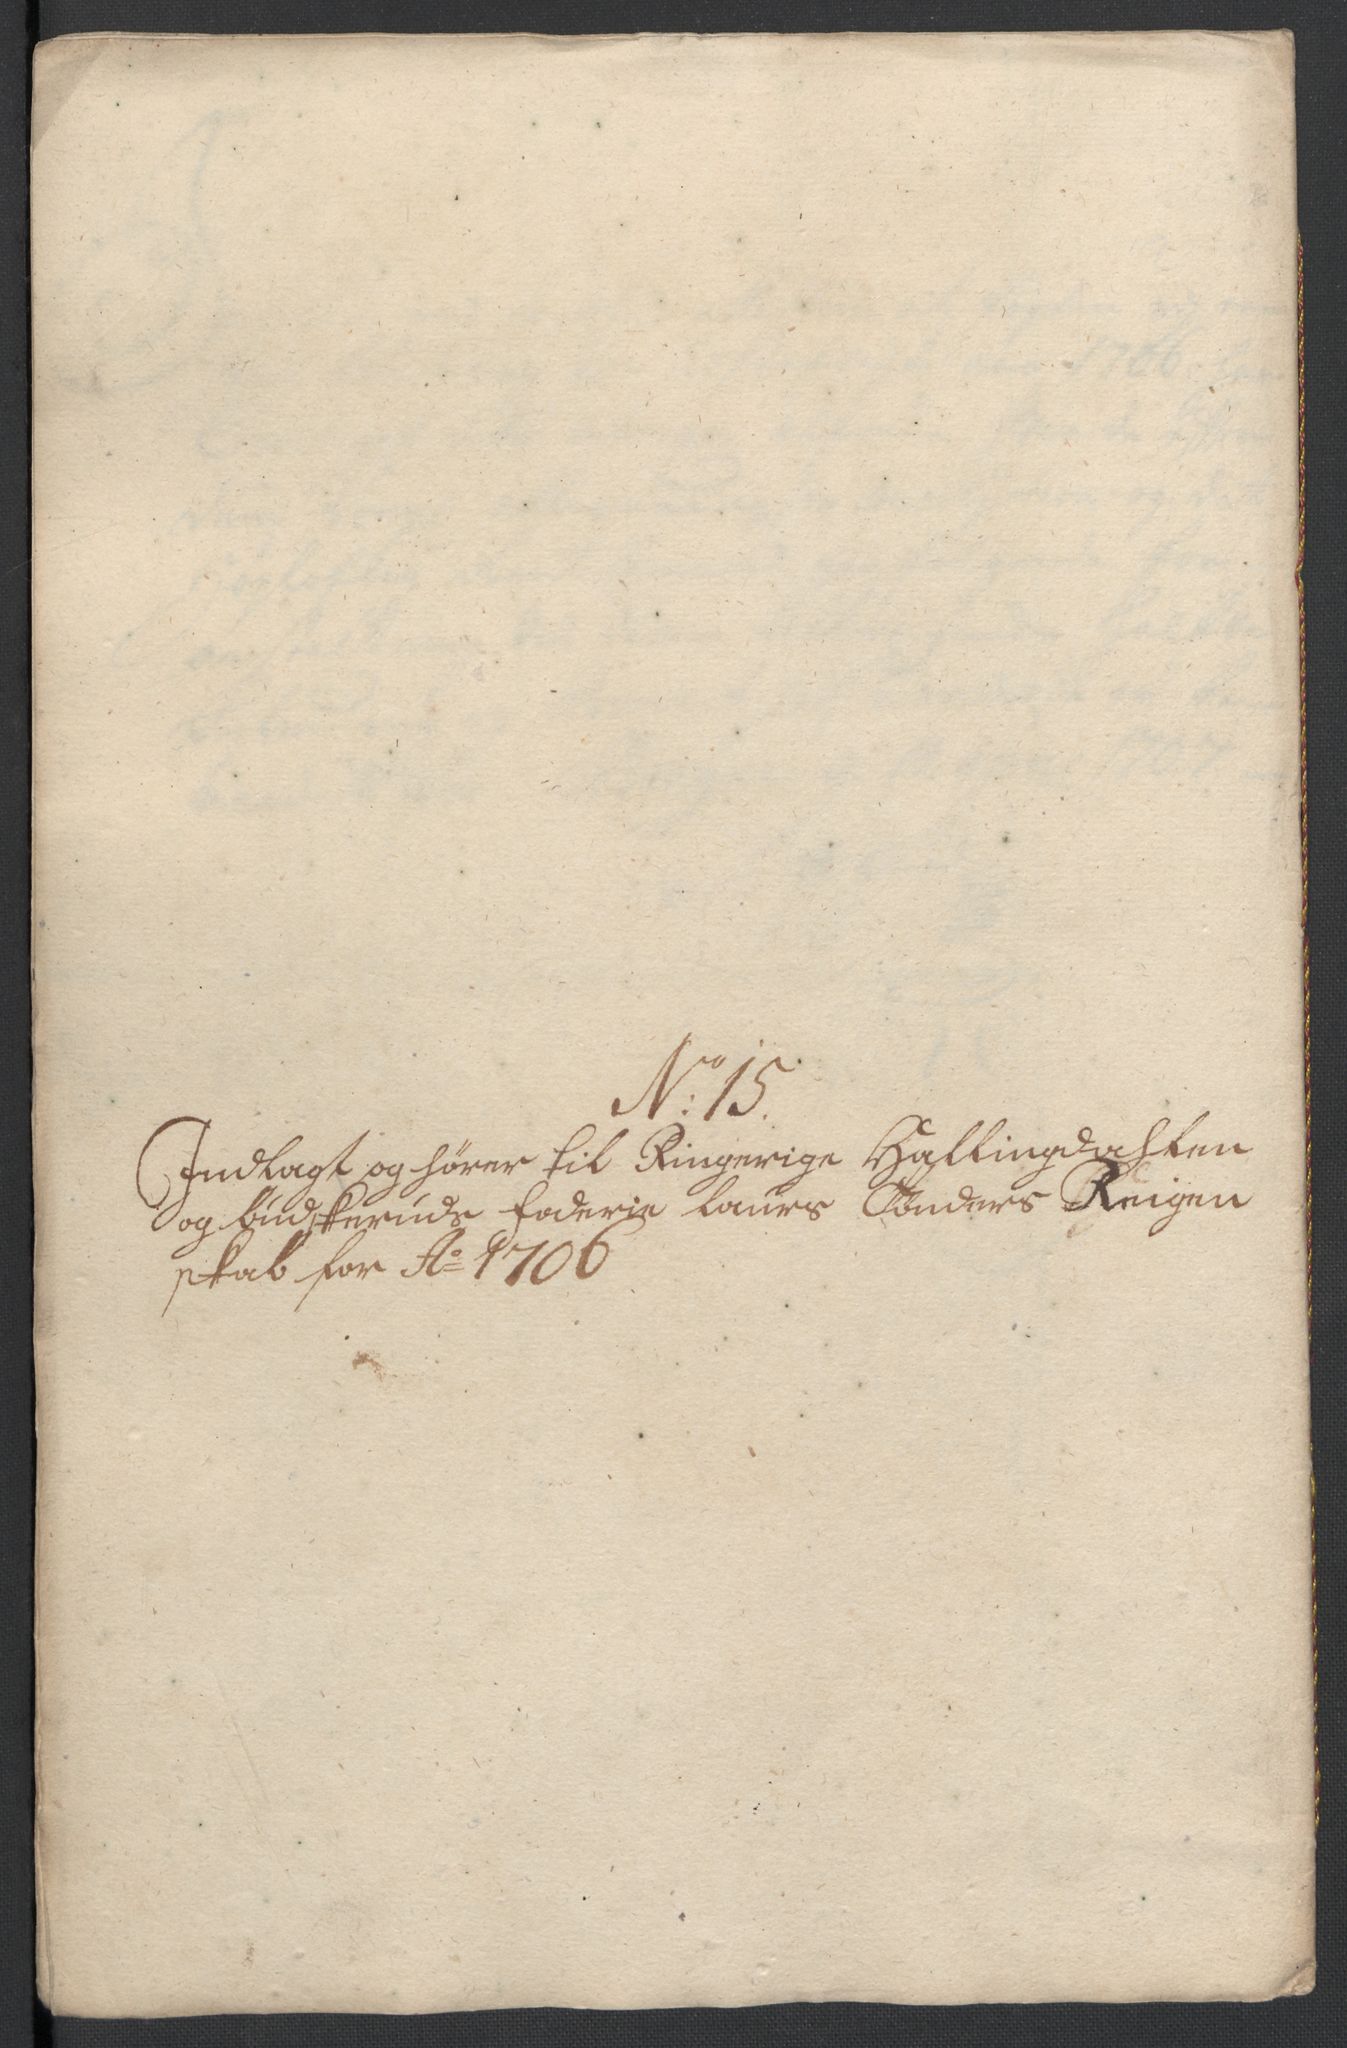 No: 15.
Indlagt og hører til Ringerige Hallingdahlen
og budskeruds foderie Laurs Tønders Reigen
skab for Ao 1706